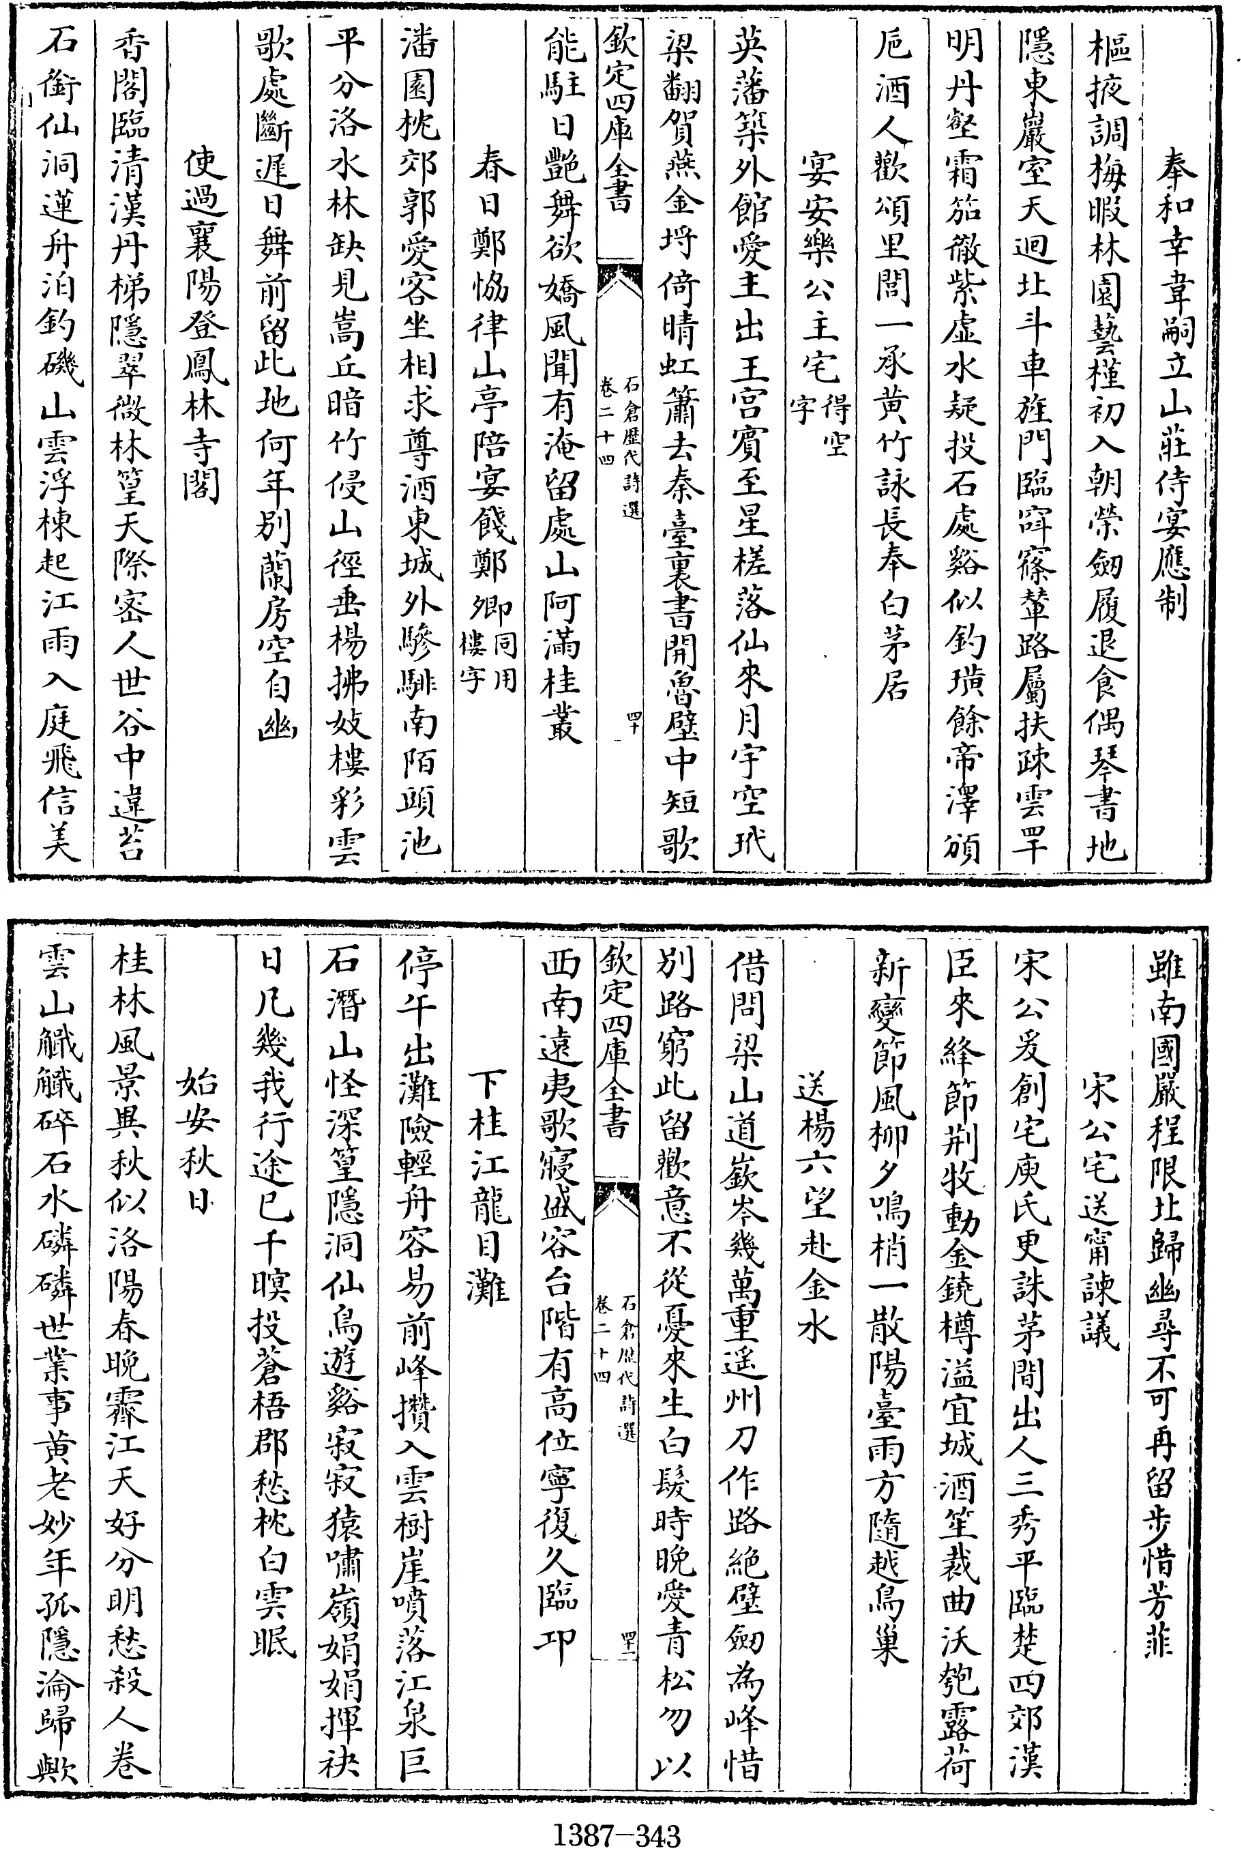 奉和幸韋嗣立山莊侍宴應制
樞掖調梅暇林園藝槿初入朝榮劒履退食偶琴書地
隱東巖室天迴北斗車旌門臨窅窱輦路屬扶疎雲罕
明丹壑霜笳徹紫虛水疑投石處谿似釣璜餘帝澤頒
巵酒人歡頌里閭一承黄竹詠長奉白茅居
宴安樂公主宅得空字
英藩築外館愛主出王宫賓至星槎落仙來月宇空玳
梁翻賀燕金埒倚晴虹簫去秦臺裏書開魯壁中短歌
欽定四庫全書
石倉歷代詩選
卷二十四
四十
能駐日艷舞欲嬌風聞有淹留處山阿滿桂叢
春日鄭協律山亭陪宴餞鄭卿同用樓字
潘園枕郊郭愛客坐相求尊酒東城外驂騑南陌頭池
平分洛水林缺見嵩丘暗竹侵山徑垂楊拂妓樓彩雲
歌處斷遲日舞前留此地何年别蘭房空自幽
使過襄陽登鳳林寺閣
香閣臨清漢丹梯隱翠微林篁天際密人世谷中違苔
石銜仙洞蓮舟泊釣磯山雲浮棟起江雨入庭飛信美
雖南國嚴程限北歸幽尋不可再留步惜芳菲
宋公宅送甯諫議
宋公爰創宅庾氏更誅茅間出人三秀平臨楚四郊漢
臣來絳節荆牧動金鐃樽溢宜城酒笙裁曲沃匏露荷
新變節風柳夕鳴梢一散陽臺雨方隨越鳥巢
送楊六望赴金水
借問梁山道嶔岑幾萬重遥州刀作路絶壁劒為峰惜
别路窮此留歡意不從憂來生白髮時晚愛青松勿以
欽定四庫全書
石倉歷代詩選
卷二十四
四十一
西南遠夷歌寢盛容台階有高位寧復久臨邛
下桂江龍目灘
停午出灘險輕舟容易前峰攢入雲樹崖噴落江泉巨
石潛山怪深篁隱洞仙鳥遊谿寂寂猿嘯嶺娟娟揮袂
日凡幾我行途已千暝投蒼梧郡愁枕白雲眠
始安秋日
桂林風景異秋似洛陽春晚霽江天好分明愁殺人卷
雲山觹觹碎石水磷磷世業事黄老妙年孤隱淪歸歟
1387-343